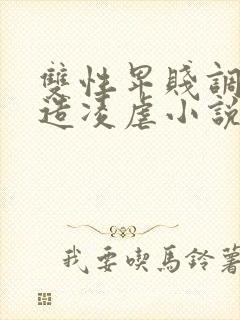 雙性卑賤調
造凌虐小說
我要喫馬鈴薯